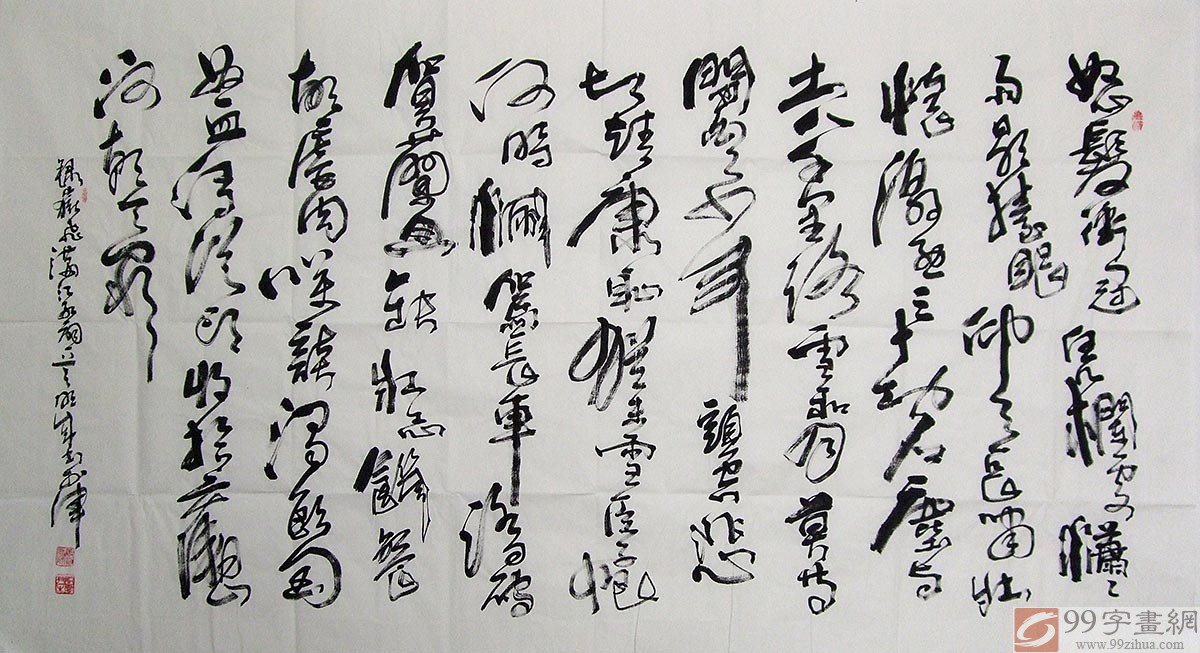 怒髮衝冠凭欄處瀟々
雨歇擡望眼仰天長嘯壯
懷激烈三十功名塵與
土八千里路雲和月莫等
閒白了少年頭空悲
切靖康恥猶未雪臣子恨
何時滅駕長車踏破
賀蘭山缺壯志飢餐
胡虜肉笑談渴飲匈
奴血待從頭收拾舊山
河朝天闕
錄岳飛滿江紅詞
99字畫網
www.99zihua.com